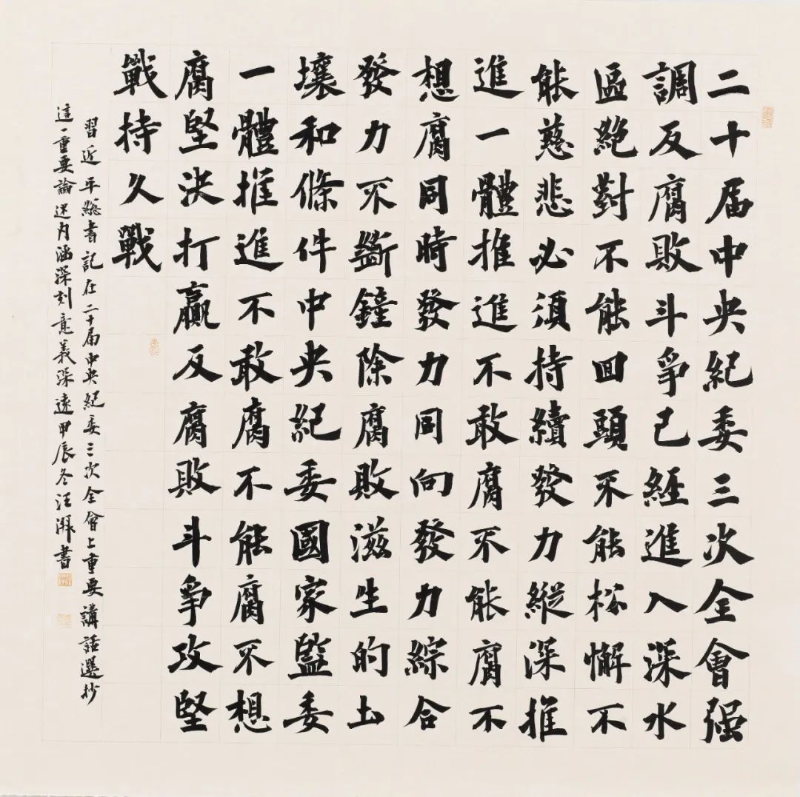 二十届中央紀委三次全會强
調反腐敗斗爭已經進入深水
區絶對不能回頭不能松懈不
能慈悲必須持續發力縱深推
進一體推進不敢腐不能腐不
想腐同時發力同向發力綜合
發力不斷鏟除腐敗滋生的土
壤和條件中央紀委國家監委
一體推進不敢腐不能腐不想
腐堅决打贏反腐敗斗爭攻堅
戰持久戰
習近平總書記在二十届中央紀委三次全會上重要講話選抄
這一重要論述内涵深刻意義深遠甲辰冬汪書